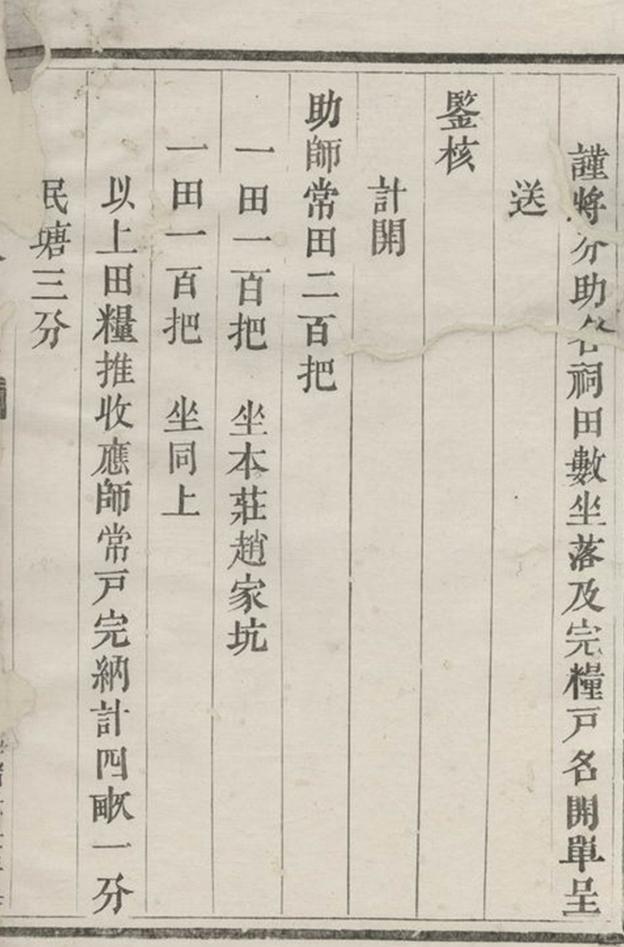 謹將分助各祠田數坐落及完糧戸名開單呈
送
鍳核
計開
助師常田二百把
一田一百把　坐本莊趙家坑
一田一百把　坐同上
以上田糧推收應師常戸完納計四畞一分
民塘三分